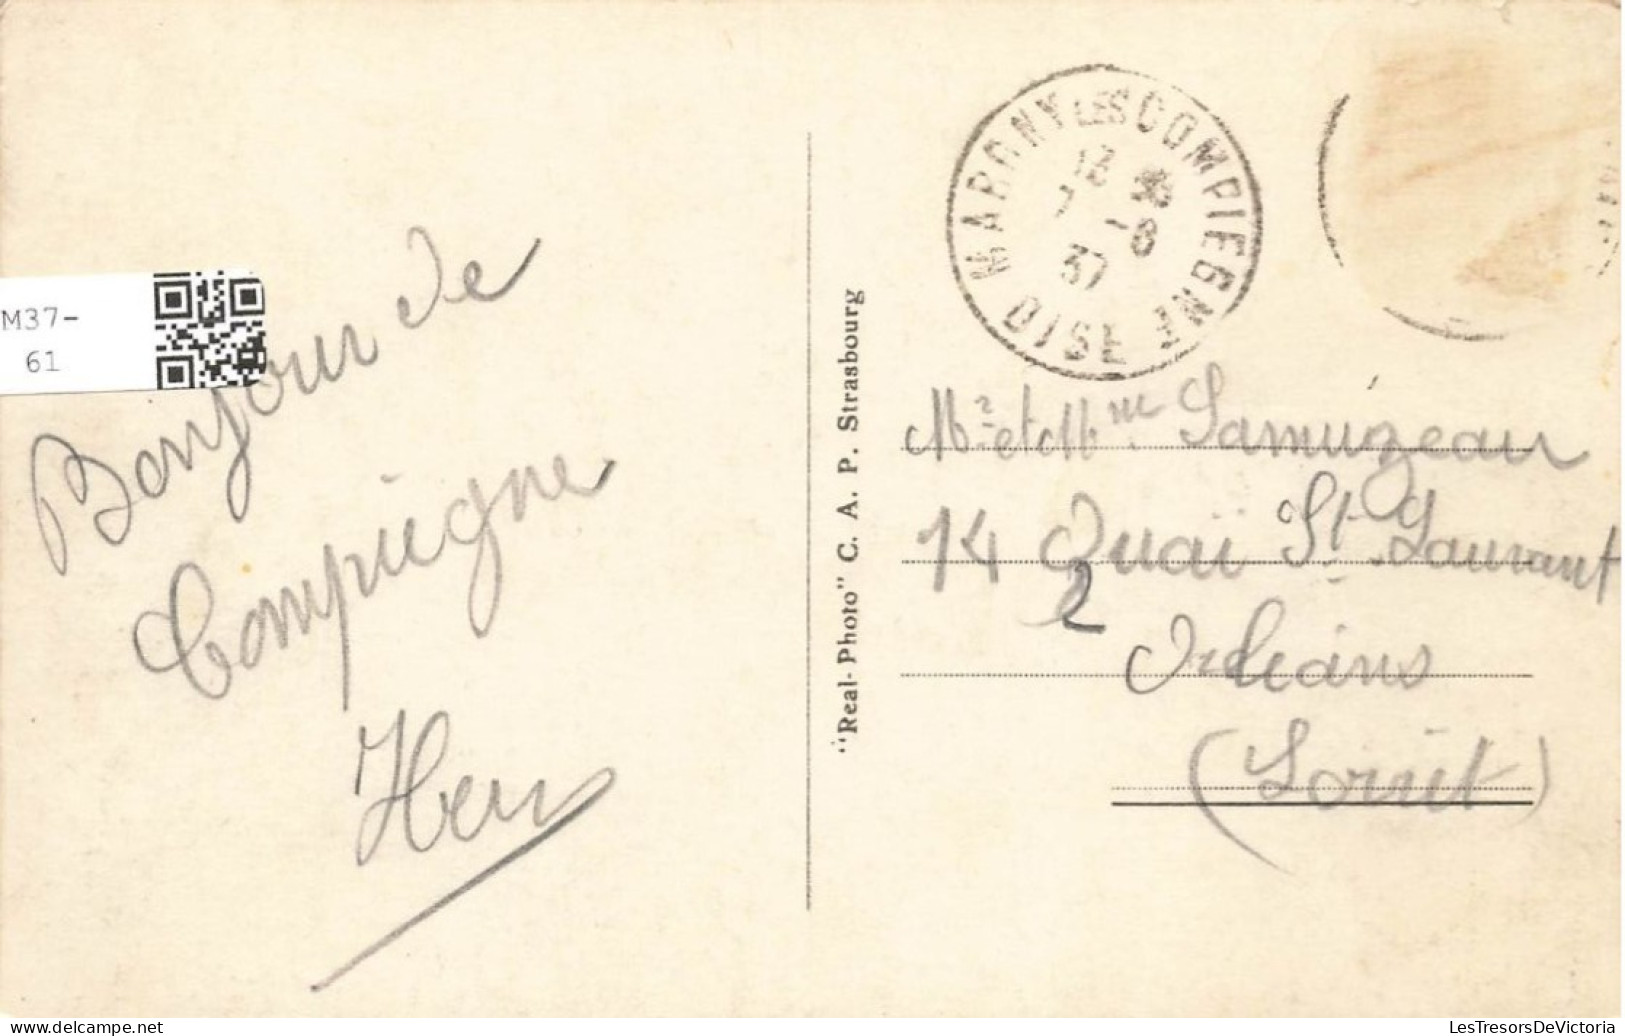 M37-
61
Bonjour de
Compiegne
"Real-Photo" C. A. P. Strasbourg
MARGNY LES COMPIEGNE
OISE
-8
37
Mr et Mme Samuzeau
14 Quai St Laurant
2
Orléans
(Loriet)
LesTresorsDeVictoria